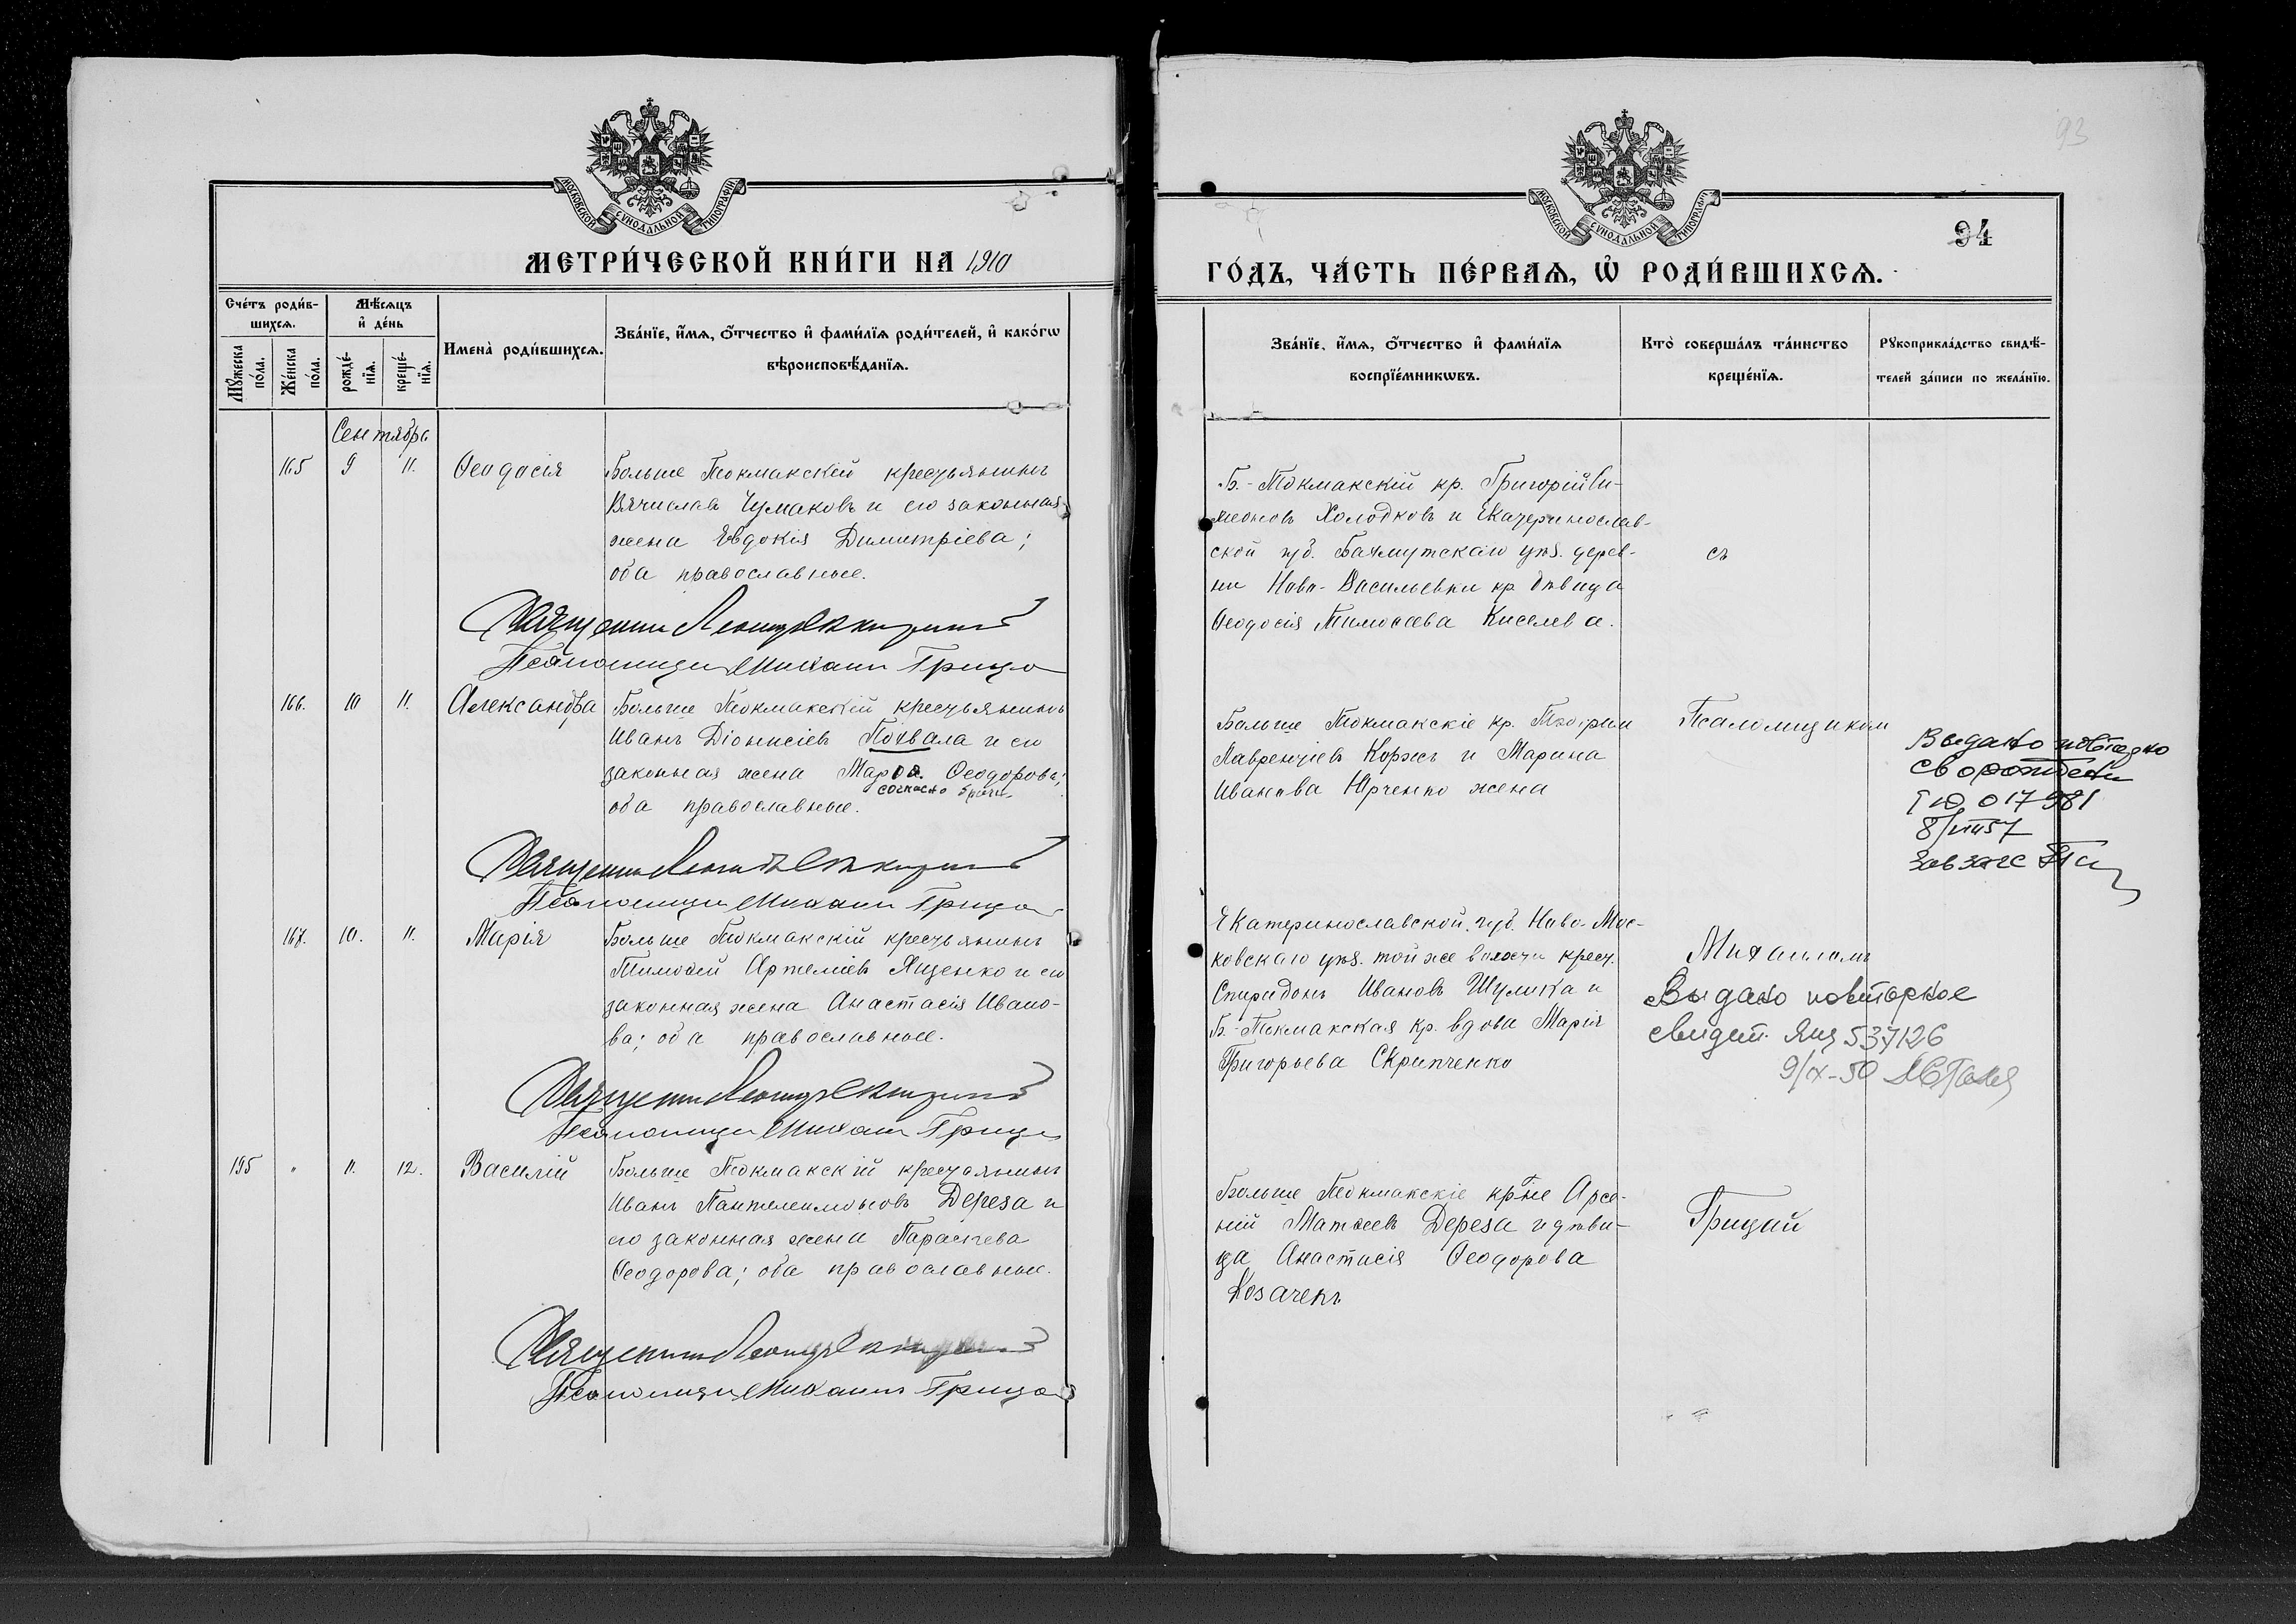 МОСКОВСКОЙ СУНОДАЛЬНОЙ ТИПОГРАФІИ
МЕТРИ́ЧЕСКОЙ КНИ́ГИ НА 1910
Сче́тъ роди́в-
шихсѧ.
Мѣ́сѧцъ
и҆ де́нь
Мꙋ́жеска по́ла.
Же́нска по́ла.
рожде́-нїѧ.
креще́-нїѧ.
Имена̀ роди́вшихсѧ.
Зва́нїе, и҆́мѧ, ѻ҆́тчество и҆ фами́лїѧ роди́телей, и҆ како́гѡ
вѣроисповѣ́данїѧ.
Сентября
165 9 11. Ѳеодосія
Больше Токмакскій крестьянинъ
Вячиславъ Чумаковъ и его законная
жена Евдокія Димитріева;
оба православные.
Священникъ
Псаломщикъ Михаилъ Грицай
166. 10 11. Александра
Больше Токмакскій крестьянинъ
Иванъ Діонисіевъ Похвала и его
законная жена Ѳеодорова;
согласно
оба православные.
Священникъ
Псаломщикъ Михаилъ Грицай
167. 10. 11. Марія
Больше Токмакскій крестьянинъ
Тимоѳей Артеміевъ Яценко и его
законная жена Анастасія Ивано-
ва; оба православные.
Священникъ
Псаломщикъ Михаилъ Грицай
195 " 11. 12. Василій
Больше Токмакскій крестьянинъ
Иванъ Пантелеимоновъ Дереза и
его законная жена Параскева
Ѳеодорова; оба православные.
Священникъ
Псаломщикъ Михаилъ Грицай
93
МОСКОВСКОЙ СУНОДАЛЬНОЙ ТИПОГРАФІИ
94
ГО́ДЪ, ЧА́СТЬ ПЕ́РВАѦ, Ѡ҆ РОДИ́ВШИХСѦ.
Зва́нїе, и҆́мѧ, ѻ҆́тчество и҆ фами́лїѧ
воспрїе́мникѡвъ.
Кто̀ соверша́лъ та́инство
креще́нїѧ.
Рꙋкоприкла́дство свидѣ́-
телей за́писи по жела́нїю.
Б.-Токмакскій кр. Григорій Си-
меоновъ Холодковъ и Екатеринослав-
ской губ. Бахмутскаго уѣз. дерев-
ни Ново-Васильевки кр. дѣвица
Ѳеодосія Тимоѳеева Киселева.
съ
Больше Токмакскіе кр.
Лаврентіевъ Коржъ и Марина
Иванова Юрченко жена
Псаломщикомъ
Выдано повторно
св о рожден
017981
8/VIII 57
Зав загс
Екатеринославской губ. Ново-Мос-
ковскаго уѣз. той же волости крест.
Спиридонъ Ивановъ Шулика и
Б.-Токмакская кр. вдова Марія
Григорьева Скрипченко
Михаиломъ
Выдано повторное
свидет. 537126
9/X-50
Больше Токмакскіе кр-не Арсе-
ній Матѳеевъ Дереза и дѣви-
ца Анастасія Ѳеодорова
Козаченъ
Грицай